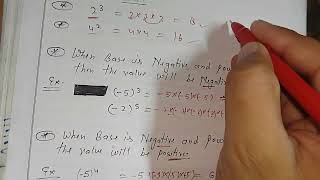 * 2³ = 2×2×2 = 8
* 4² = 4×4 = 16
* When Base is Negative and pow
then the value will be Negat
Ex. (-5)³ = -5×(-5)×(-5)
(-2)⁵ =
* When Base is Negative and Pow
the value will be positive.
Ex (-5)⁴ =